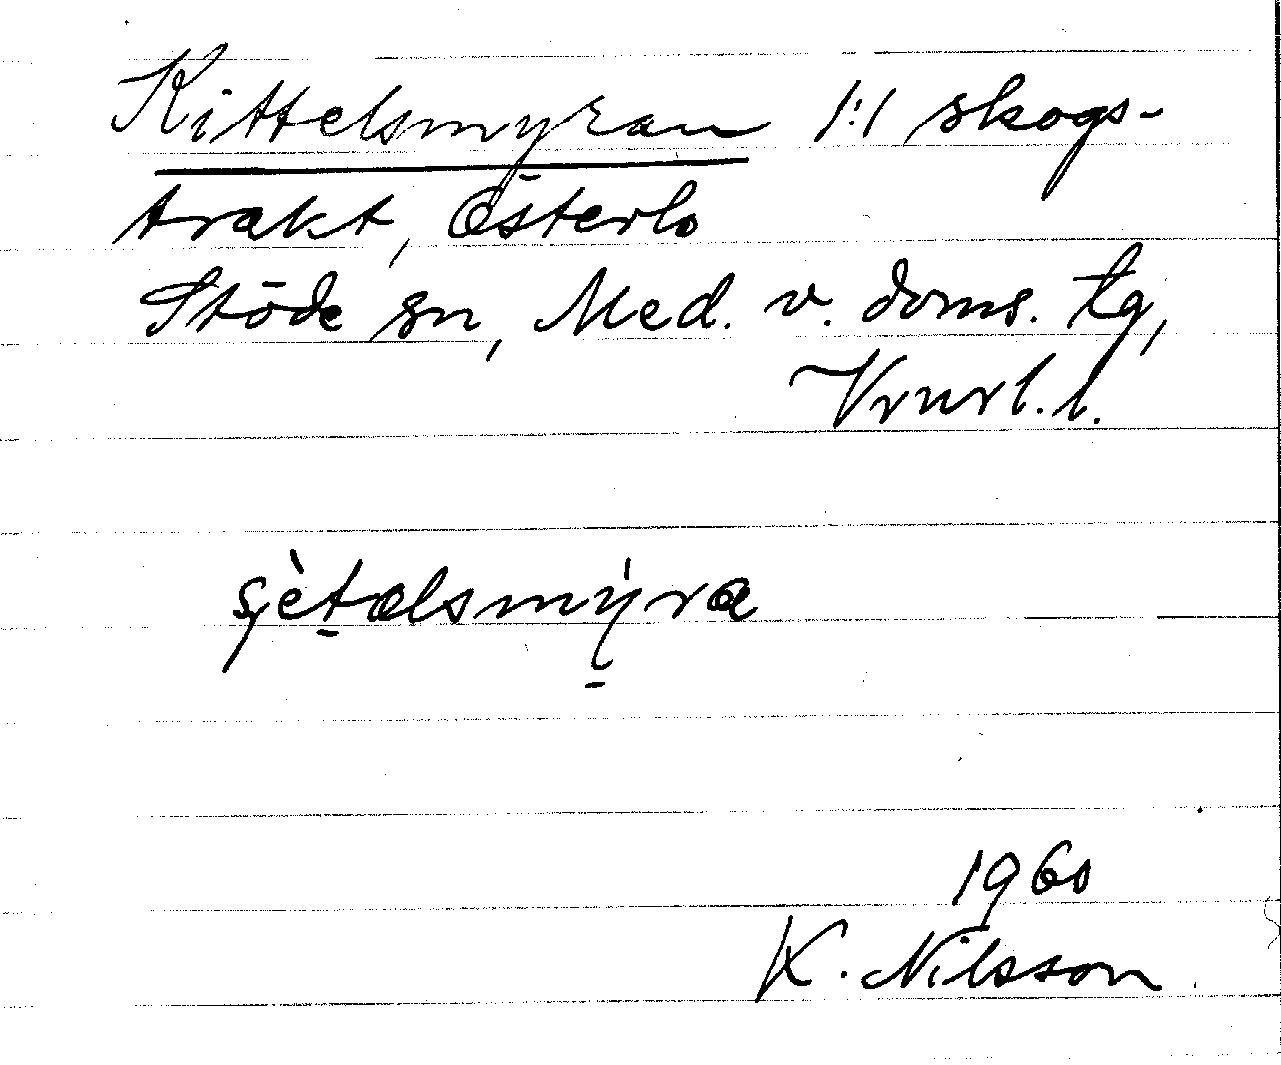 Kittelsmyran 1:1 skogs-
trakt, Österlo
Stöde sn, Med. v. doms. tg,
Vrnrl. l.
1960
K. Nilsson